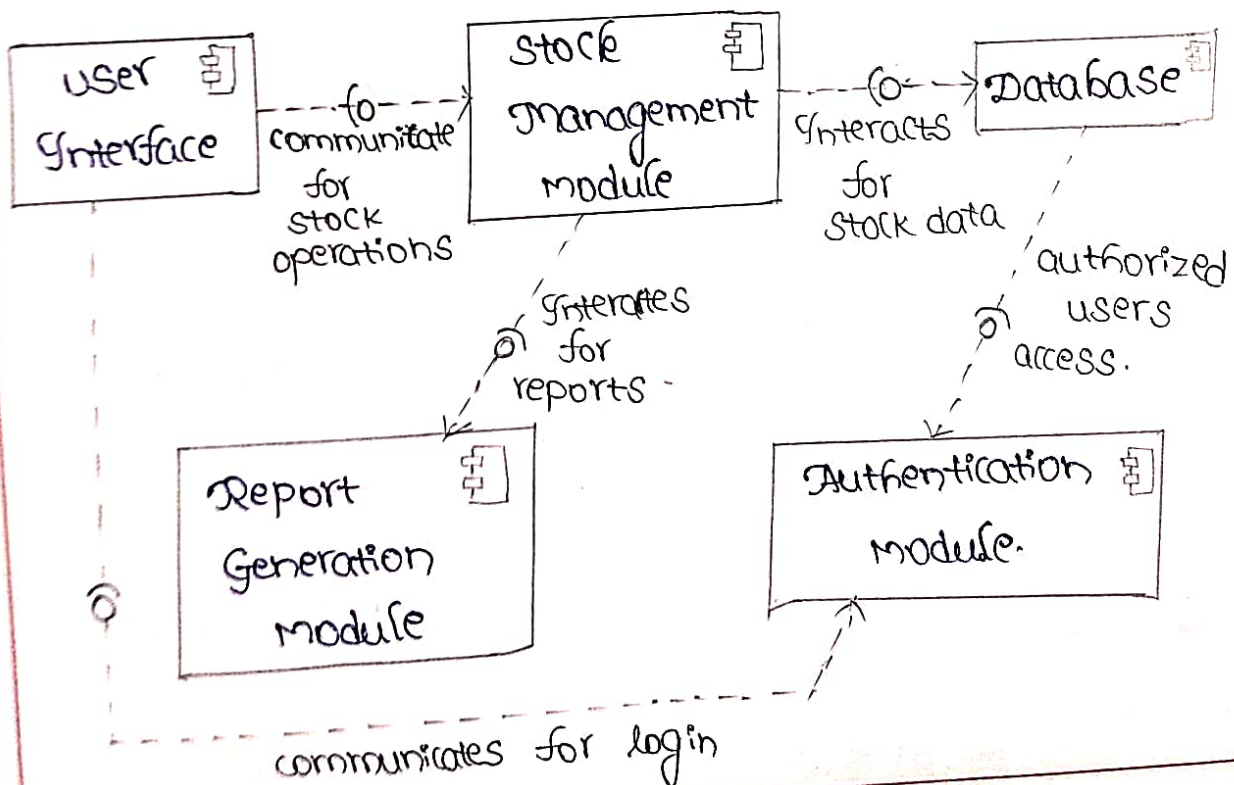 user
Interface
communitate
for
stock
operations
Stock
Management
module
Interacts
for
stock data
Database
authorized
users
access.
Interates
for
reports.
Report
Generation
module
Authentication
module.
communicates for login